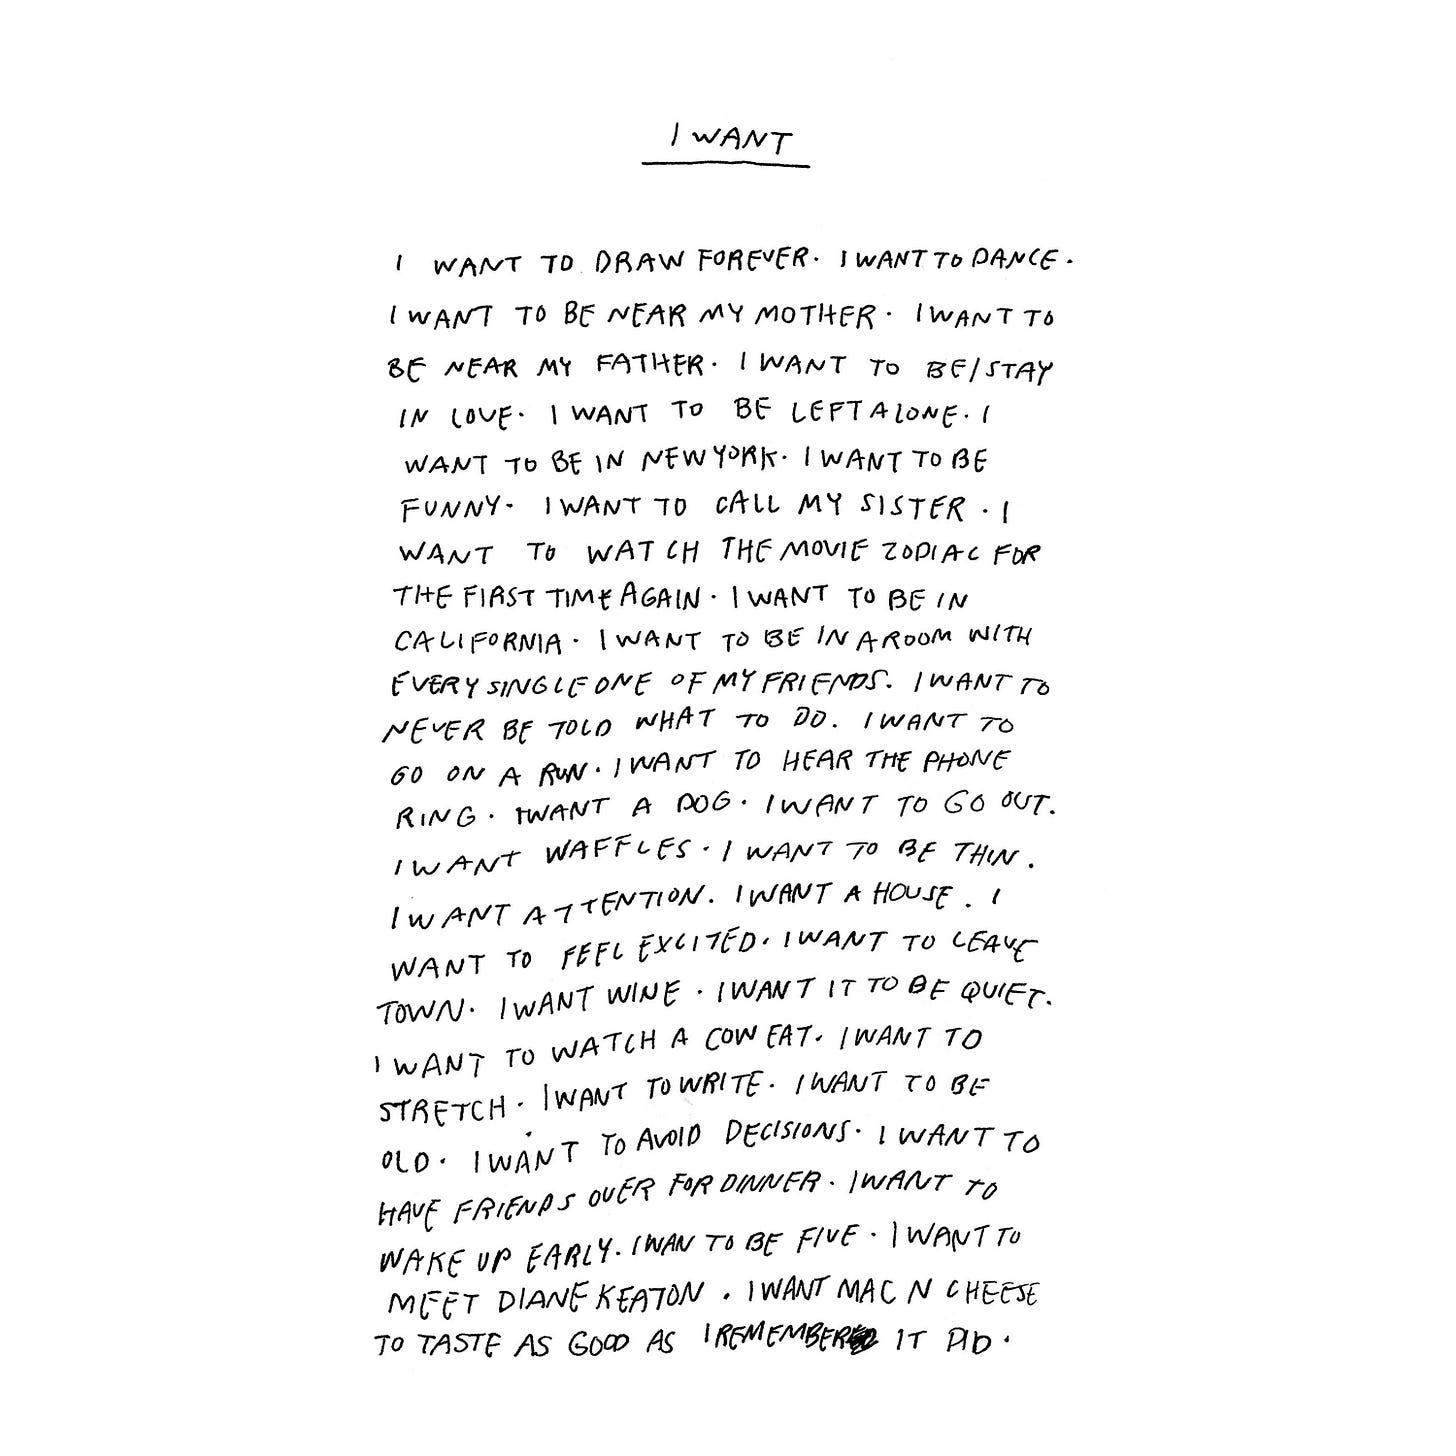 I WANT
I WANT TO DRAW FOREVER. I WANT TO DANCE.
I WANT TO BE NEAR MY MOTHER. I WANT TO
BE NEAR MY FATHER. I WANT TO BE/STAY
IN LOVE. I WANT TO BE LEFT ALONE. I
WANT TO BE IN NEW YORK. I WANT TO BE
FUNNY. I WANT TO CALL MY SISTER. I
WANT TO WATCH THE MOVIE ZODIAC FOR
THE FIRST TIME AGAIN. I WANT TO BE IN
CALIFORNIA. I WANT TO BE IN A ROOM WITH
EVERY SINGLE ONE OF MY FRIENDS. I WANT TO
NEVER BE TOLD WHAT TO DO. I WANT TO
GO ON A RUN. I WANT TO HEAR THE PHONE
RING. I WANT A DOG. I WANT TO GO OUT.
I WANT WAFFLES. I WANT TO BE THIN.
I WANT ATTENTION. I WANT A HOUSE. I
WANT TO FEEL EXCITED. I WANT TO LEAVE
TOWN. I WANT WINE. I WANT IT TO BE QUIET.
I WANT TO WATCH A COW EAT. I WANT TO
STRETCH. I WANT TO WRITE. I WANT TO BE
OLD. I WANT TO AVOID DECISIONS. I WANT TO
HAVE FRIENDS OVER FOR DINNER. I WANT TO
WAKE UP EARLY. I WAN TO BE FIVE. I WANT TO
MEET DIANE KEATON. I WANT MAC N CHEESE
TO TASTE AS GOOD AS I REMEMBER IT DID.